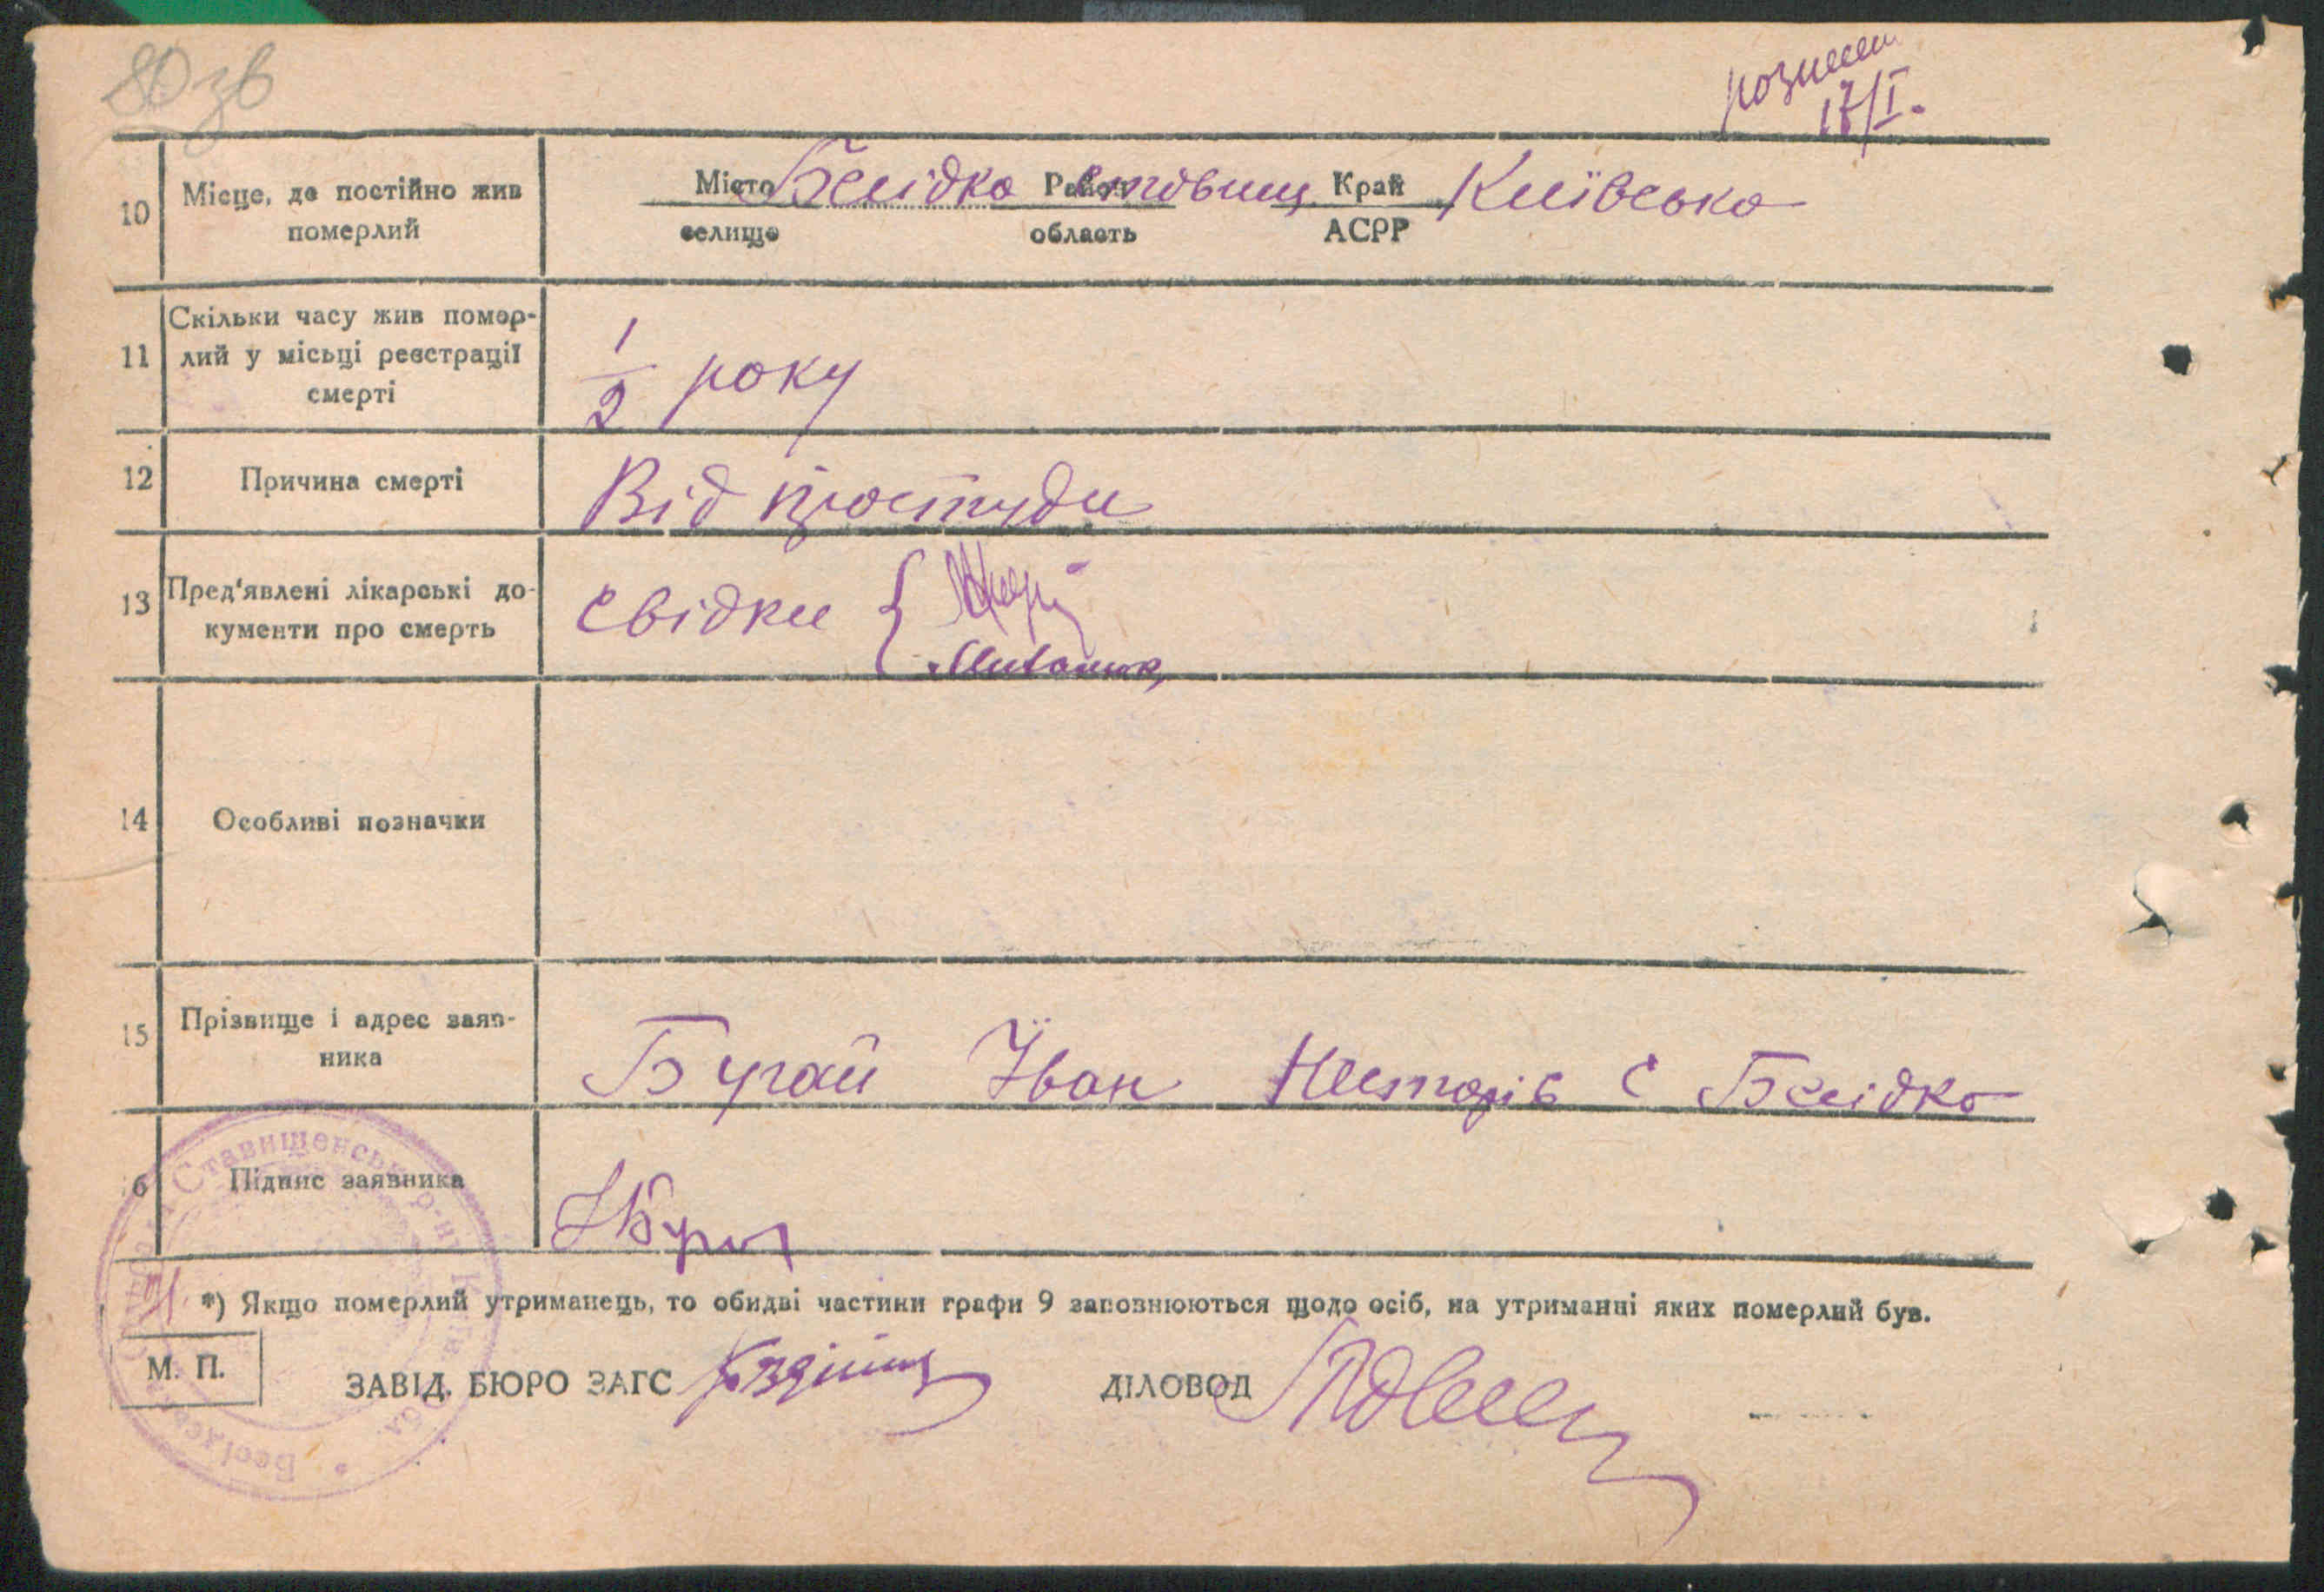 80 зв
17/I.
10 Місце, де постійно жив померлий
Місто Бесідка Район Ставищ. Край Київська
селище область АСРР
11 Скільки часу жив помер-
лий у місьці реєстрації
смерті
1/2 року
12 Причина смерті Від простуди
13 Пред'явлені лікарські до-
кументи про смерть
Свідки {
14 Особливі позначки
15 Прізвище і адрес заяв-
ника
Бугай Іван Несторів с Бесідка
6 Підпис заявника
*) Якщо померлий утриманець, то обидві частини графи 9 заповнюються щодо осіб, на утриманні яких померлий був.
М. П.
ЗАВІД. БЮРО ЗАГС ДІЛОВОД
Ставищенськ р-ну Бесідська